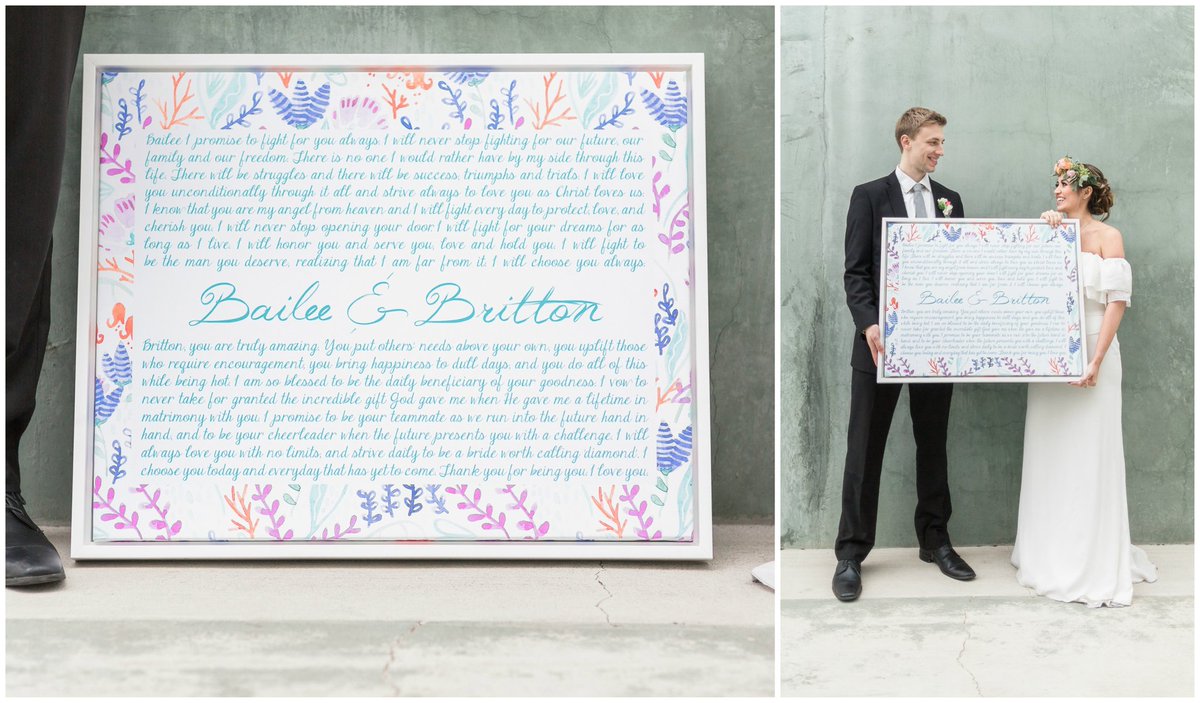 Bailee I promise to fight for you always. I will never stop fighting for our future, our
family and our freedom. There is no one I would rather have by my side through this
life. There will be struggles and there will be success; triumphs and trials. I will love
you unconditionally through it all and strive always to love you as Christ loves us.
I know that you are my angel from heaven and I will fight every day to protect, love, and
cherish you. I will never stop opening your door I will fight for your dreams for as
long as I live. I will honor you and serve you, love and hold you. I will fight to
be the man you deserve, realizing that I am far from it. I will choose you always.
Bailee & Britton
Britton, you are truly amazing. You put others' needs above your own, you uplift those
who require encouragement, you bring happiness to dull days, and you do all of this
while being hot. I am so blessed to be the daily beneficiary of your goodness. I vow to
never take for granted the incredible gift God gave me when He gave me a lifetime in
matrimony with you. I promise to be your teammate as we run into the future hand in
hand, and to be your cheerleader when the future presents you with a challenge. I will
always love you with no limits, and strive daily to be a bride worth calling diamond. I
choose you today and everyday that has yet to come. Thank you for being you. I love you.
Bailee & Britton